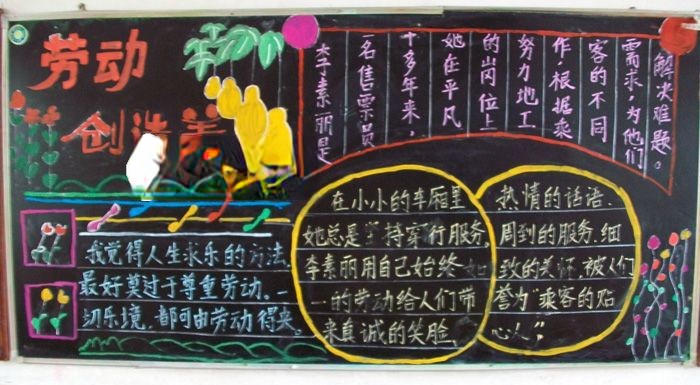 劳动
创造美
李素丽是
一名售票员
十多年来,
她在平凡
的岗位上
努力地工
作,根据乘
客的不同
需求,为他们
解决难题。
我觉得人生求乐的方法,
最好莫过于尊重劳动。一
切乐境,都可由劳动得来。
在小小的车厢里
她总是坚持穿行服务。
李素丽用自己始终如
一的劳动给人们带
来真诚的笑脸、
热情的话语、
周到的服务、细
致的关怀,被人们
誉为“乘客的贴
心人”。